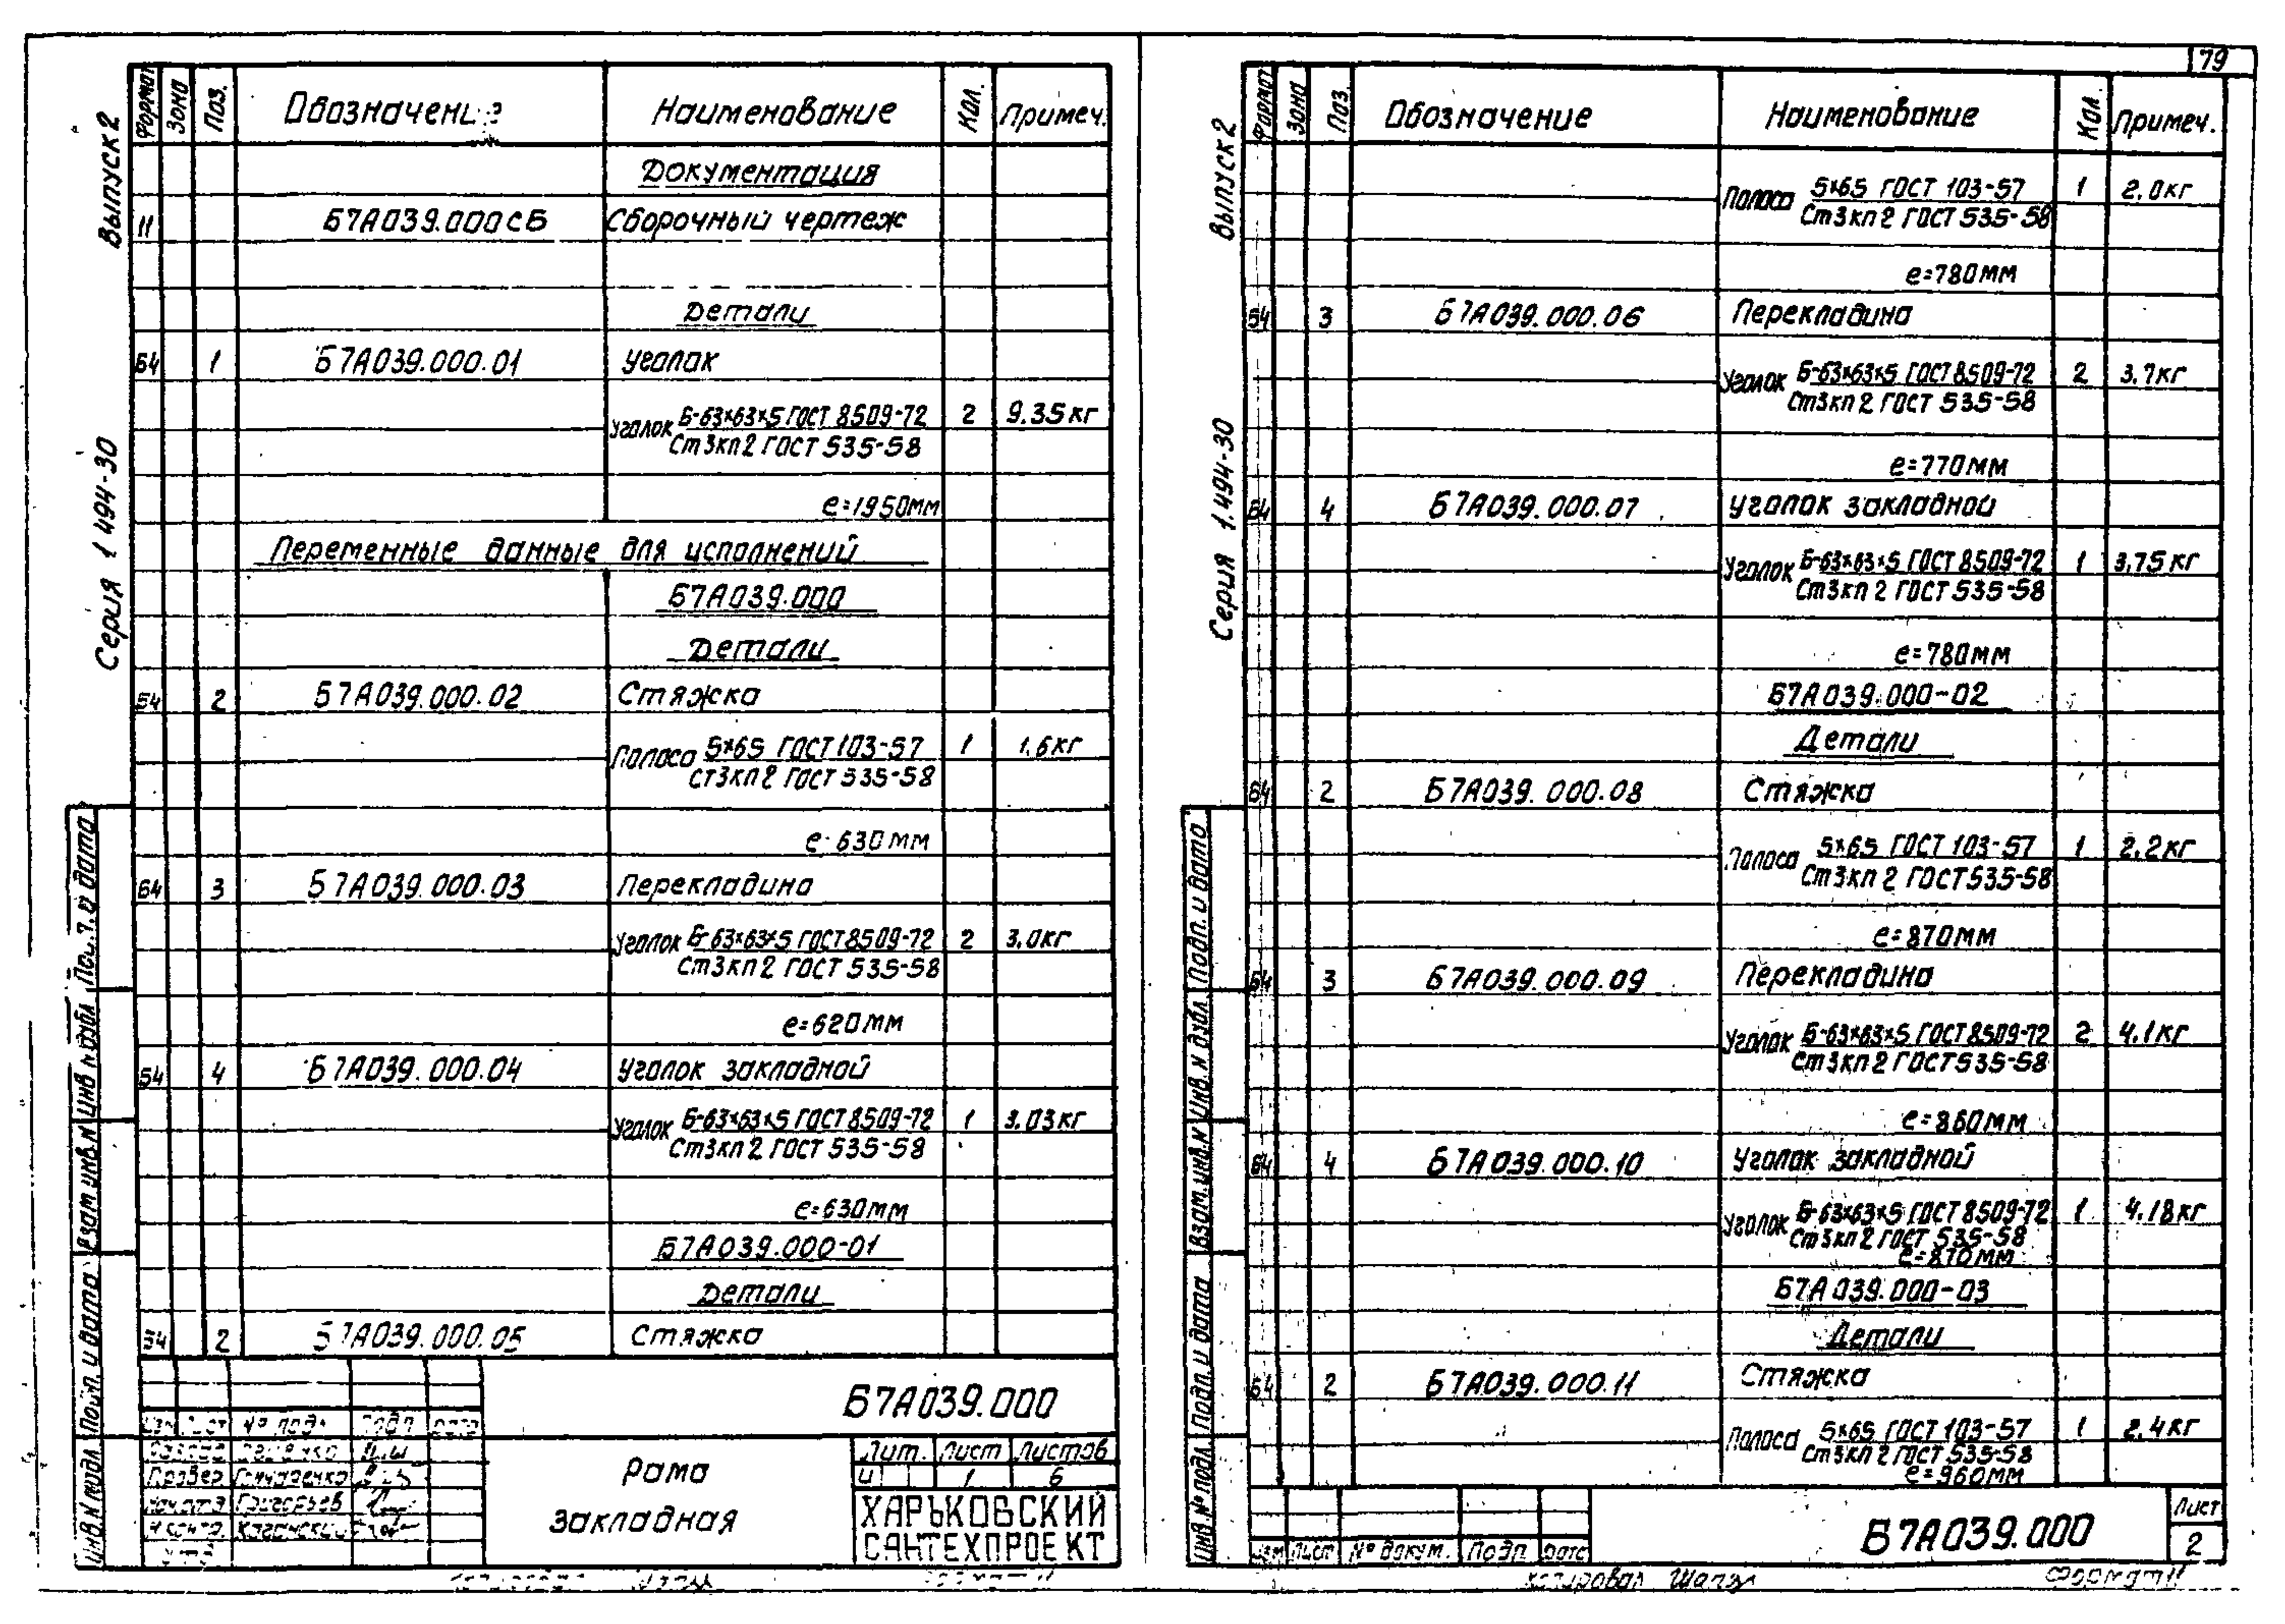 79
Выпуск 2
Серия 1.494-30
Формат Зона Поз. Обозначение Наименование Кол. Примеч.
Документация
11 Б7А039.000СБ Сборочный чертеж
Детали
Б4 1 Б7А039.000.01 Уголок
Уголок Б-63×63×5 ГОСТ 8509-72 2 9.35кг
Ст3кп2 ГОСТ 535-58
е=1950мм
Переменные данные для исполнений
Б7А039.000
Детали
Б4 2 Б7А039.000.02 Стяжка
Полоса 5×65 ГОСТ 103-57 1 1.6кг
Ст3кп2 ГОСТ 535-58
е=630мм
Б4 3 Б7А039.000.03 Перекладина
Уголок Б-63×63×5 ГОСТ 8509-72 2 3.0кг
Ст3кп2 ГОСТ 535-58
е=620мм
Б4 4 Б7А039.000.04 Уголок закладной
Уголок Б-63×63×5 ГОСТ 8509-72 1 3.03кг
Ст3кп2 ГОСТ 535-58
е=630мм
Б7А039.000-01
Детали
Б4 2 Б7А039.000.05 Стяжка
Б7А039.000
Рама
закладная
Лит. Лист Листов
И 1 6
ХАРЬКОВСКИЙ
САНТЕХПРОЕКТ
Провер. Гончаренко
Нач.отд. Григорьев
Н.контр.
Инв.№подл. Подп. и дата Взам.инв.№ Инв.№дубл. Подп. и дата
Выпуск 2
Серия 1.494-30
Формат Зона Поз. Обозначение Наименование Кол. Примеч.
Полоса 5×65 ГОСТ 103-57 1 2.0кг
Ст3кп2 ГОСТ 535-58
е=780мм
Б4 3 Б7А039.000.06 Перекладина
Уголок Б-63×63×5 ГОСТ 8509-72 2 3.7кг
Ст3кп2 ГОСТ 535-58
е=770мм
Б4 4 Б7А039.000.07 Уголок закладной
Уголок Б-63×63×5 ГОСТ 8509-72 1 3.75кг
Ст3кп2 ГОСТ 535-58
е=780мм
Б7А039.000-02
Детали
Б4 2 Б7А039.000.08 Стяжка
Полоса 5×65 ГОСТ 103-57 1 2.2кг
Ст3кп2 ГОСТ 535-58
е=870мм
Б4 3 Б7А039.000.09 Перекладина
Уголок Б-63×63×5 ГОСТ 8509-72 2 4.1кг
Ст3кп2 ГОСТ 535-58
е=860мм
Б4 4 Б7А039.000.10 Уголок закладной
Уголок Б-63×63×5 ГОСТ 8509-72 1 4.18кг
Ст3кп2 ГОСТ 535-58
е=870мм
Б7А039.000-03
Детали
Б4 2 Б7А039.000.11 Стяжка
Полоса 5×65 ГОСТ 103-57 1 2.4кг
Ст3кп2 ГОСТ 535-58
е=960мм
Изм Лист № докум. Подп. Дата
Б7А039.000
Лист
2
Инв.№подл. Подп. и дата Взам.инв.№ Инв.№дубл. Подп. и дата
Копировал
Формат 11